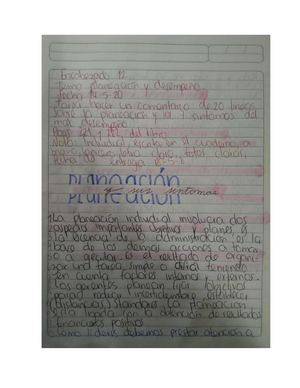 Encabezado 12.
Tema: planeacion y desempeño
fecha: 14-5-20
tarea: hacer un comentario de 20 lineas
sobre la planeacion y los sintomas del
mal desempeño
Pags 121 y del libro
Nota: Individual, escribir en el cuaderno, a
letra clara, fotos claras,
fecha de entrega
planeación
y sus sintomas
La planeación individual involucra dos
aspectos importantes: objetivos y planes, es
la escencia de la administracion es la
base de las demas acciones a tomar
o a ejecutar es el resultado de organi-
zar una tarea simple o dificil teniendo
en cuenta factores internos y externos.
Los gerentes planean fijar objetivos
para reducir incertidumbre, establecer
la planeacion
esta ligada con la obtencion de resultados
financieros positivos
Como lideres debemos prestar atencion a